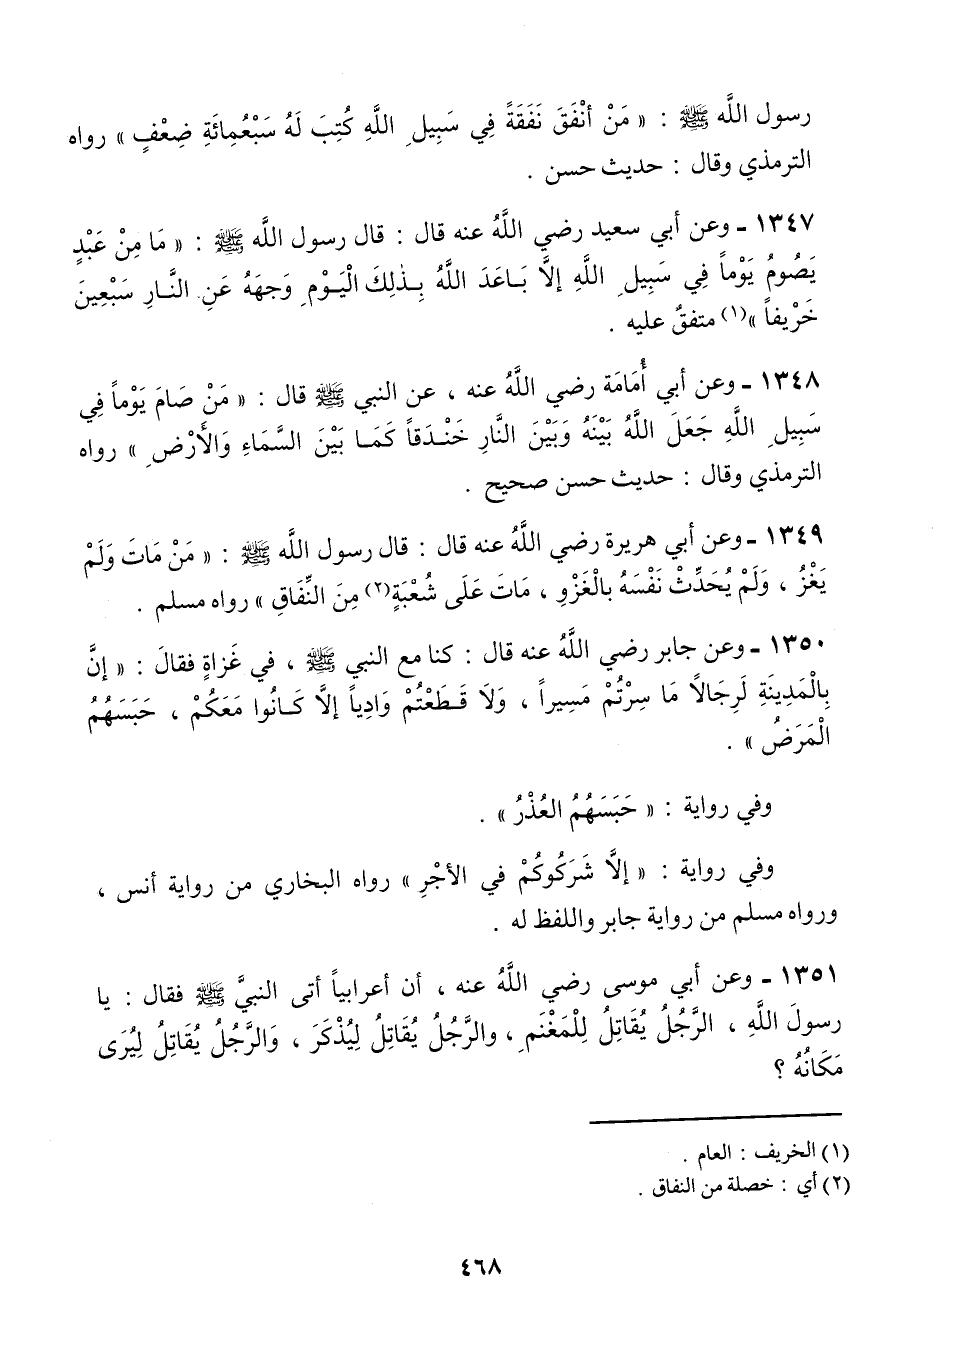 رسول اللَّه ﷺ : « مَنْ أنْفَقَ نَفَقَةً فِي سَبِيلِ اللَّهِ كُتِبَ لَهُ سَبْعُمِائَةِ ضِعْفٍ » رواه
الترمذي وقال : حديث حسن .
١٣٤٧ - وعن أبي سعيد رضي اللَّهُ عنه قال : قال رسول اللَّه ﷺ : « مَا مِنْ عَبْدٍ
يَصُومُ يَوْماً فِي سَبِيلِ اللَّهِ إلَّا بَاعَدَ اللَّهُ بِذٰلِكَ الْيَوْمِ وَجهَهُ عَنِ النَّارِ سَبْعِينَ
خَرْيفاً »(١) متفقٌ عليه .
١٣٤٨ - وعن أبي أُمَامَة رضي اللَّهُ عنه ، عن النبي ﷺ قال : « مَنْ صَامَ يَوْماً فِي
سَبِيلِ اللَّهِ جَعَلَ اللَّهُ بَيْنَهُ وَبَيْنَ النَّارِ خَنْدَقاً كَمَا بَيْنَ السَّمَاءِ وَالأَرْضِ » رواه
الترمذي وقال : حديث حسن صحيح .
١٣٤٩ - وعن أبي هريرة رضي اللَّهُ عنه قال : قال رسول اللَّه ﷺ : « مَنْ مَاتَ وَلَمْ
يَغْزُ ، وَلَمْ يُحَدِّثْ نَفْسَهُ بِالْغَزْوِ ، مَاتَ عَلَى شُعْبَةٍ(٢) مِنَ النِّفَاقِ » رواه مسلم .
١٣٥٠ - وعن جابر رضي اللَّهُ عنه قال : كنا مع النبي ﷺ ، في غَزاةٍ فقالَ : « إنَّ
بِالْمَدِينَةِ لَرِجَالاً مَا سِرْتُمْ مَسِيراً ، وَلَا قَطَعْتُمْ وَادِياً إلَّا كَانُوا مَعَكُمْ ، حَبَسَهُمُ
الْمَرَضُ » .
وفي رواية : « حَبَسَهُمُ العُذْرُ » .
وفي رواية : « إلَّا شَرَكُوكُمْ في الأجْرِ » رواه البخاري من رواية أنس ،
ورواه مسلم من رواية جابر واللفظ له .
١٣٥١ - وعن أبي موسى رضي اللَّهُ عنه ، أن أعرابياً أتى النبيَّ ﷺ فقال : يا
رسولَ اللَّهِ ، الرَّجُلُ يُقَاتِلُ لِلْمَغْنَمِ ، والرَّجُلُ يُقَاتِلُ لِيُذْكَرَ ، وَالرَّجُلُ يُقَاتِلُ لِيُرَى
مَكَانُهُ ؟
(١) الخريف : العام .
(٢) أي : خصلة من النفاق .
٤٦٨